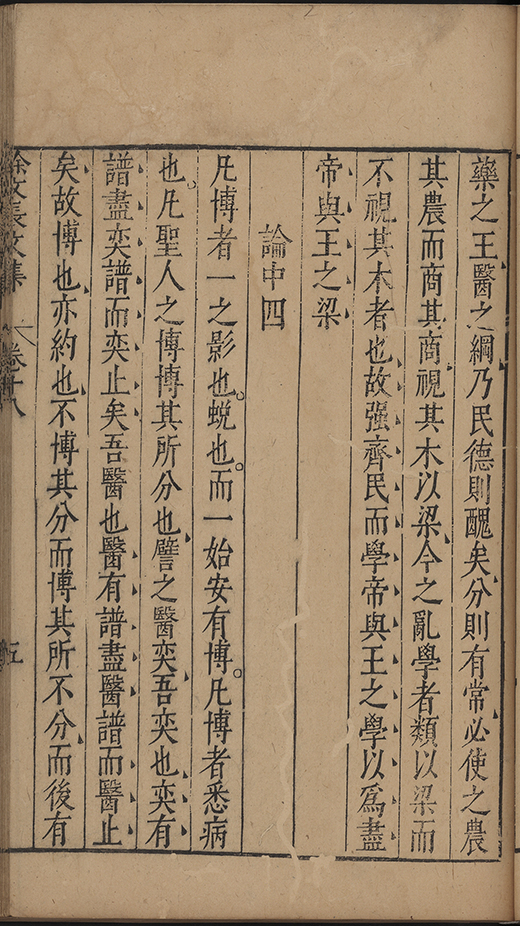 藥之王醫之綱乃民德則醜矣分則有常必使之農
其農而商其商視其木以梁今之亂學者類以梁而
不視其木者也故强齊民而學帝與王之學以爲盡
帝與王之梁
論中四
凡博者一之影也蛻也而一始安有博凡博者悉病
也凡聖人之博博其所分也譬之醫奕吾奕也奕有
譜盡奕譜而奕止矣吾醫也醫有譜盡醫譜而醫止
矣故博也亦約也不博其分而博其所不分而後有
徐文長文集 卷十八 五